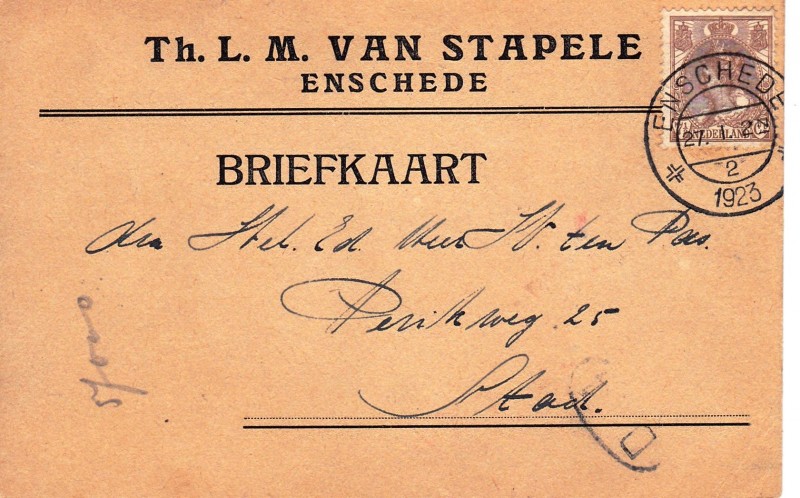 TH. L. M. VAN STAPELE
ENSCHEDE
NEDERLAND
ENSCHEDE
27. 1. 2
2
1923
BRIEFKAART
den Wel. Ed. Heer W. ten Pas.
Perikweg 25
Stad.